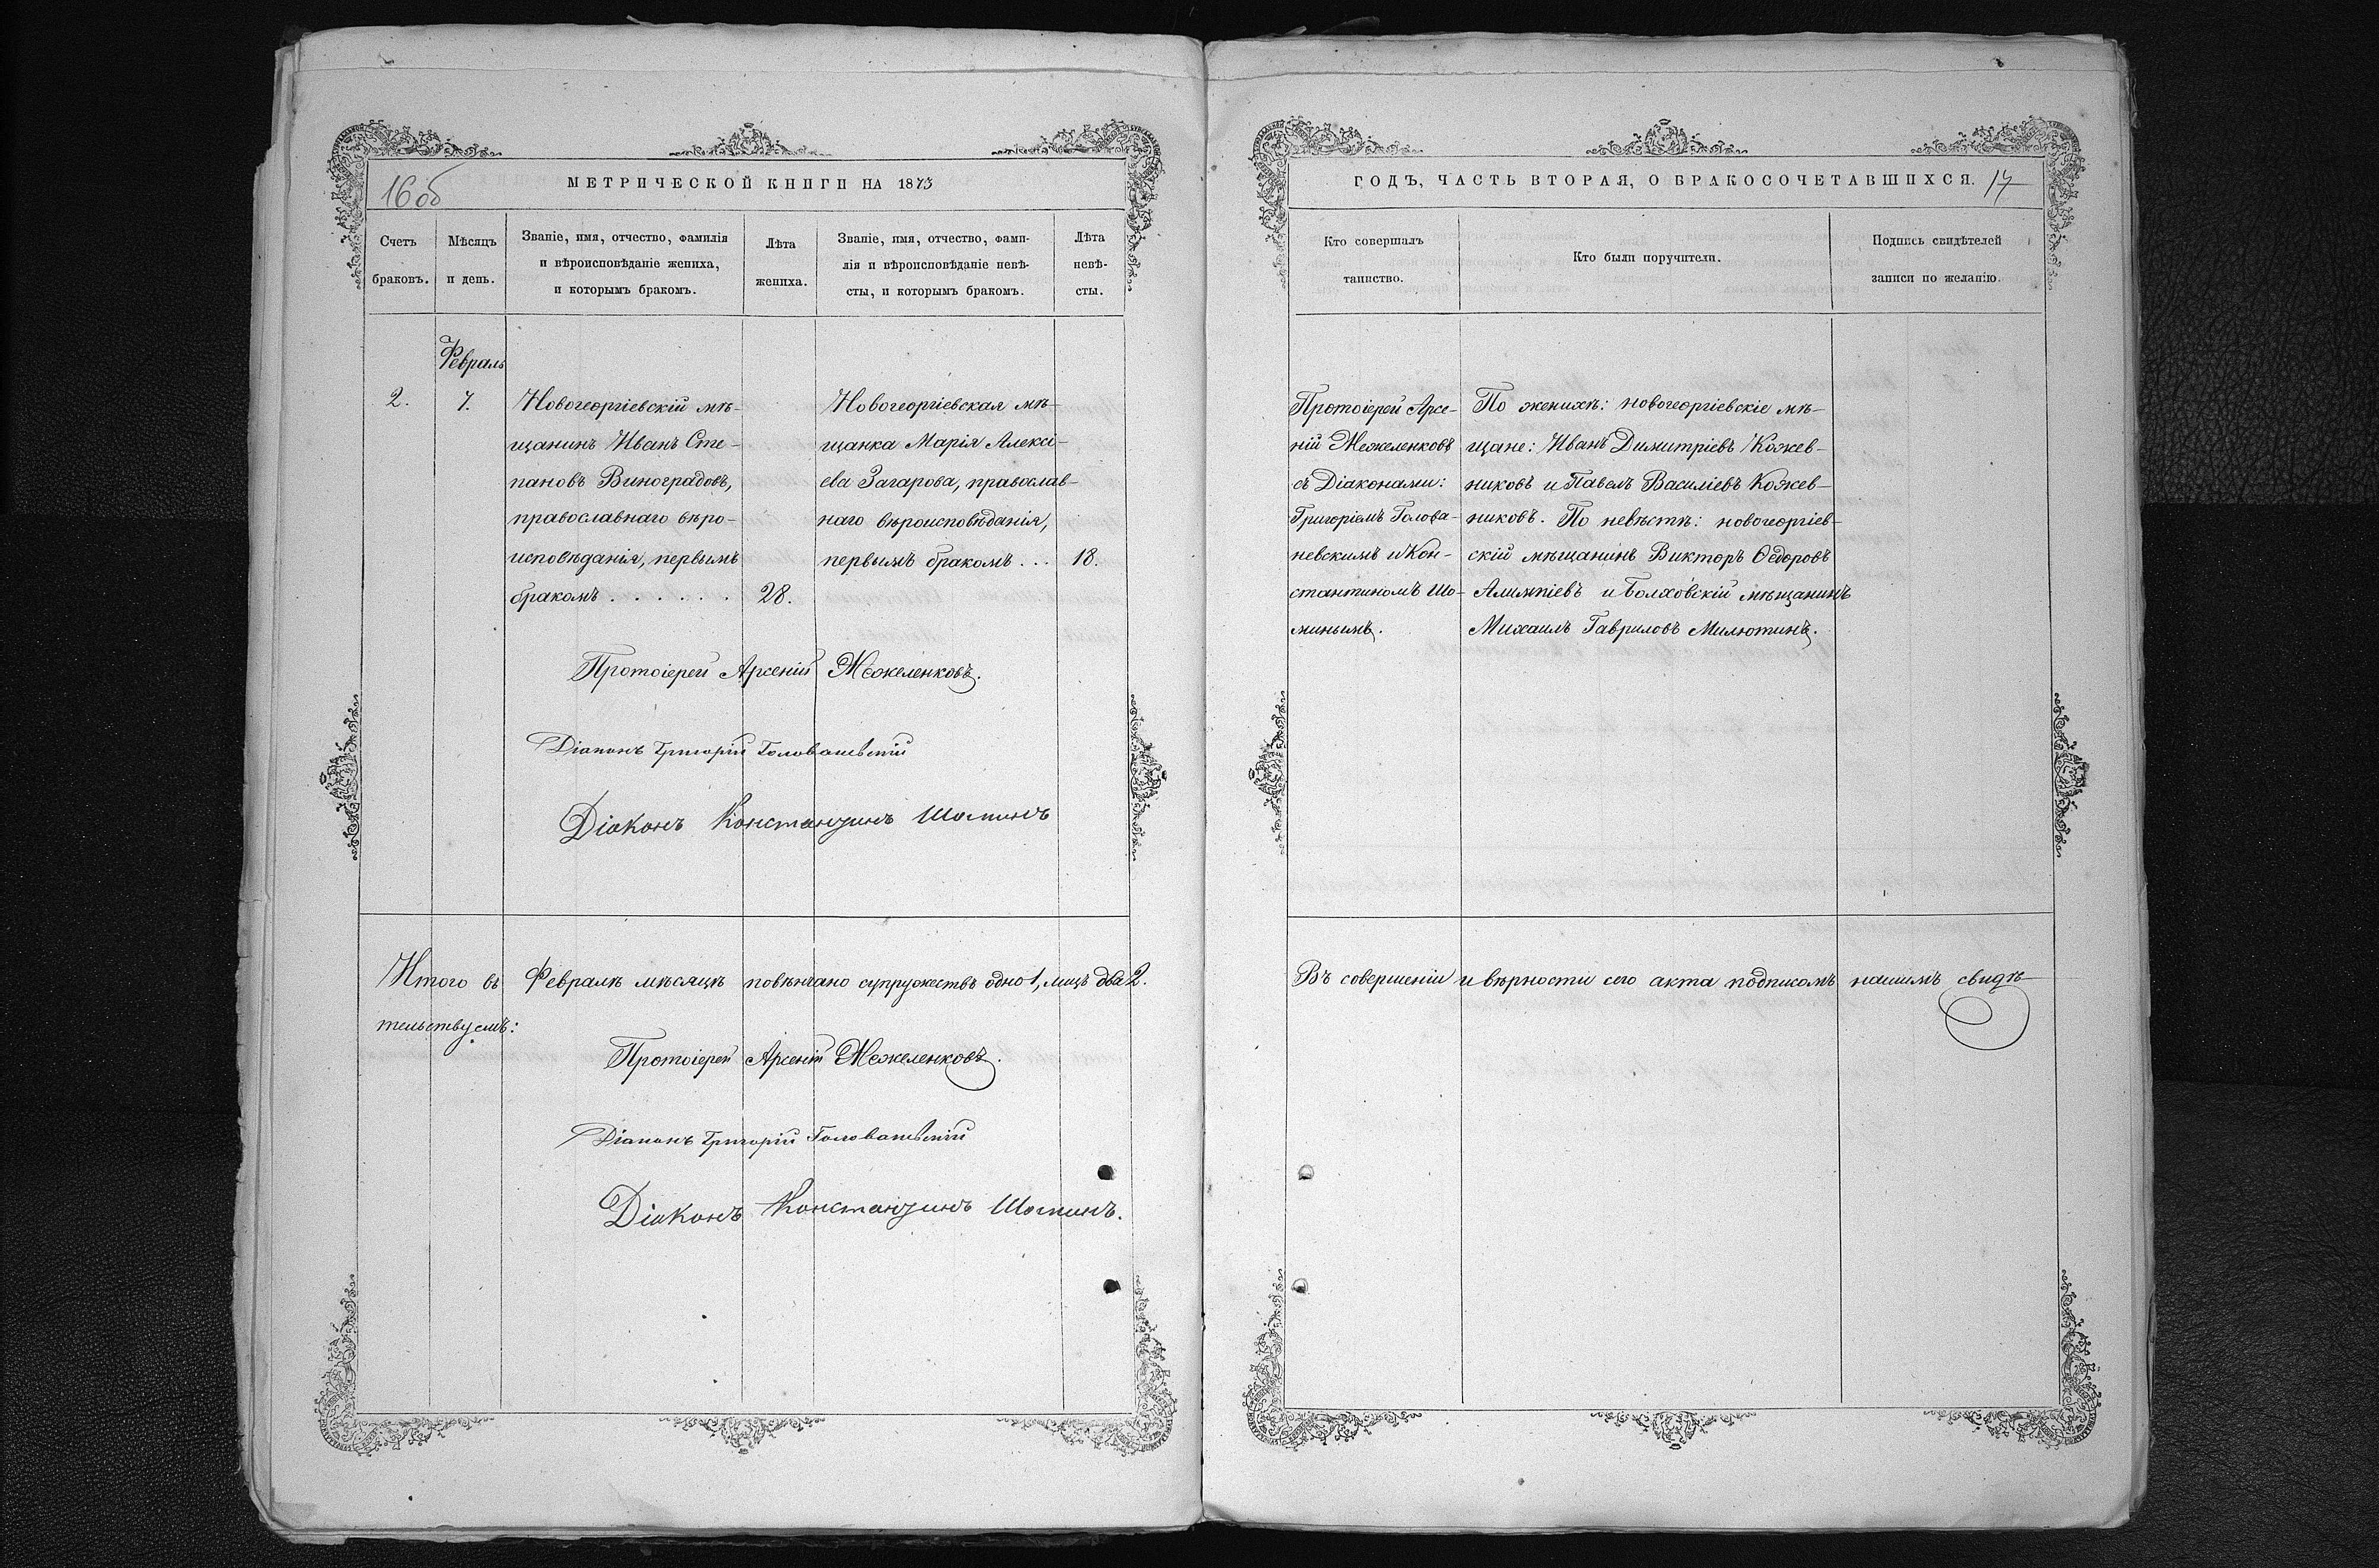 16 об
МЕТРИЧЕСКОЙ КНИГИ НА 1873
Счетъ
браковъ.
Мѣсяцъ
и день.
Званіе, имя, отчество, фамилія
и вѣроисповѣданіе жениха,
и которымъ бракомъ.
Лѣта
жениха.
Званіе, имя, отчество, фами-
лія и вѣроисповѣданіе невѣ-
сты, и которымъ бракомъ.
Лѣта
невѣ-
сты.
Февраль
2.
7.
Новогеоргіевскій мѣ-
щанинъ Иванъ Сте-
пановъ Виноградовъ,
православнаго вѣро-
исповѣданія, первымъ
бракомъ . . . . . .
28.
Новогеоргіевская мѣ-
щанка Марія Алексі-
ева Загарова, православ-
наго вѣроисповѣданія,
первымъ бракомъ . . .
18.
Протоіерей Арсеній Межеленковъ.
Діаконъ Григорій Голованевскій
Діаконъ Константинъ Шоминъ
Итого въ Февралѣ мѣсяцѣ повѣнчано супружествъ одно 1, лицъ два 2.
тельствуемъ:
Протоіерей Арсеній Межеленковъ.
Діаконъ Григорій Голованевскій
Діаконъ Константинъ Шоминъ.
ГОДЪ, ЧАСТЬ ВТОРАЯ, О БРАКОСОЧЕТАВШИХСЯ.
17
Кто совершалъ
таинство.
Кто были поручители.
Подпись свидѣтелей
записи по желанію.
Протоіерей Арсе-
ній Межеленковъ
съ Діаконами:
Григоріемъ Голова-
невскимъ и Кон-
стантиномъ Шо-
минымъ.
По женихѣ: новогеоргіевскіе мѣ-
щане: Иванъ Димитріевъ Кожев-
никовъ и Павелъ Василіевъ Кожев-
никовъ. По невѣстѣ: новогеоргіев-
скій мѣщанинъ Викторъ Ѳедоровъ
Алимпіевъ и Болховскій мѣщанинъ
Михаилъ Гавриловъ Милютинъ.
Въ совершеніи и вѣрности сего акта подписомъ нашимъ свидѣ-